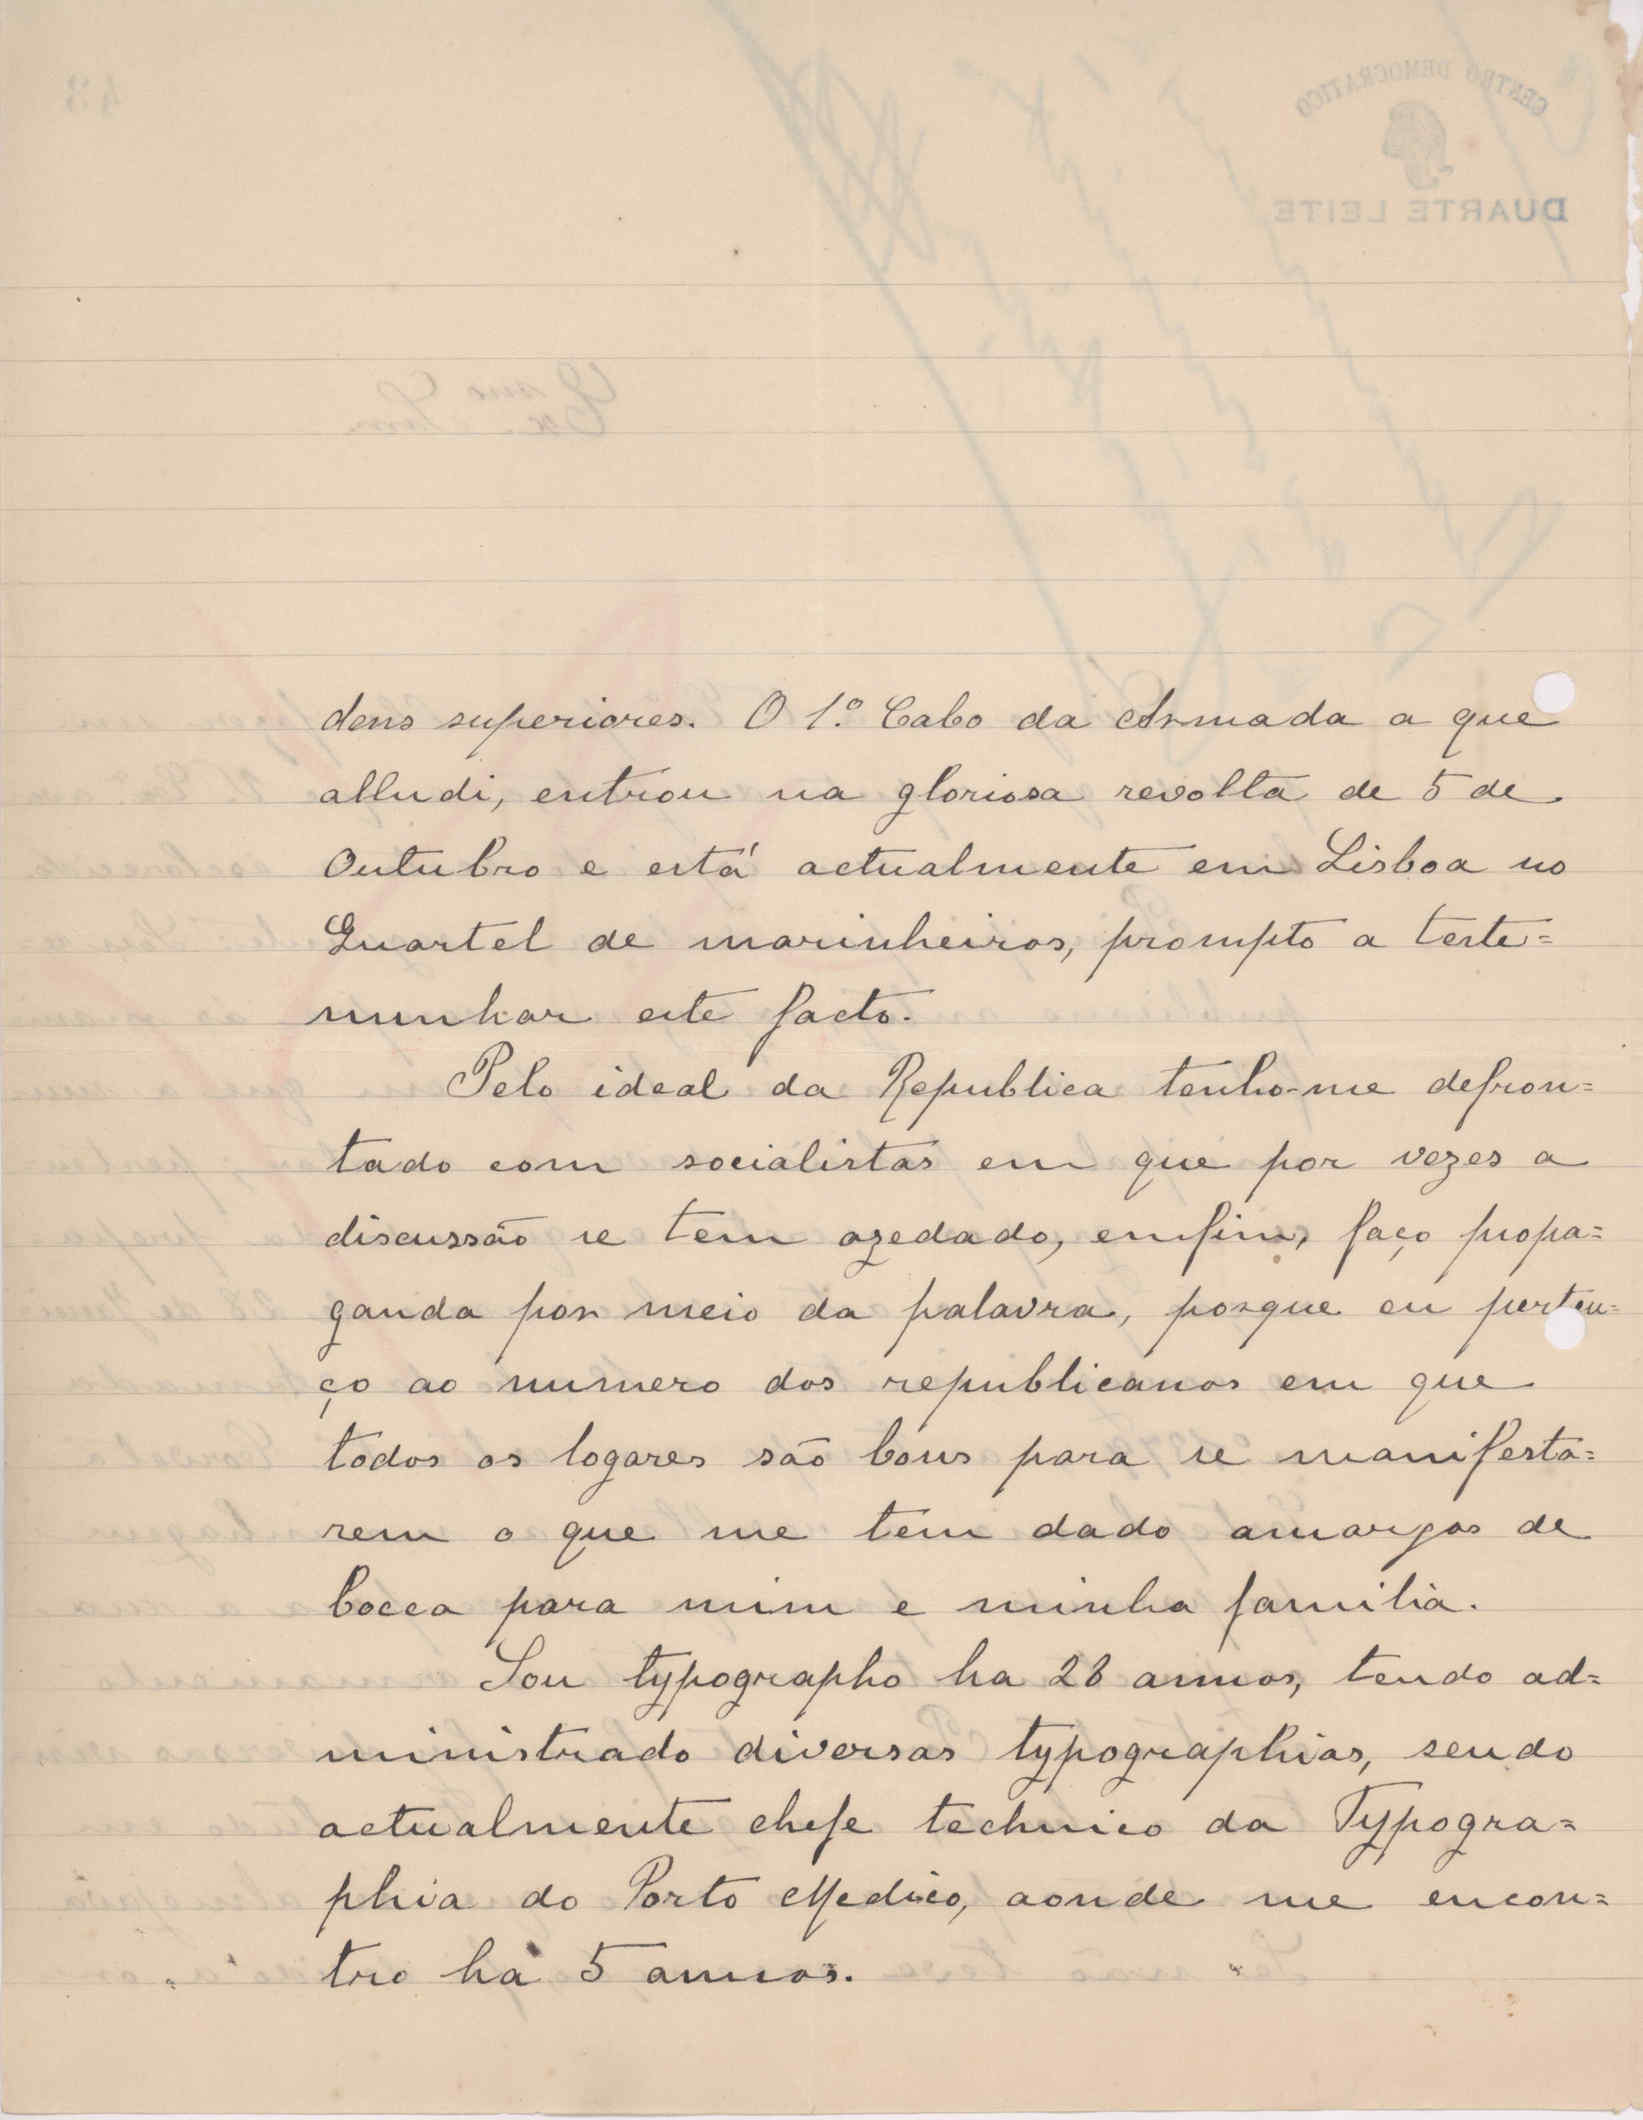 dens superiores. O 1.º Cabo da Armada a que
alludi, entrou na gloriosa revolta de 5 de
Outubro e está actualmente em Lisboa no
Quartel de marinheiros, prompto a teste=
munhar este facto.
Pelo ideal da Republica tenho-me defron=
tado com socialistas em que por vezes a
discussão se tem azedado, emfim, faço propa=
ganda por meio da palavra, porque eu perten=
ço ao numero dos republicanos em que
todos os logares são bons para se manifesta=
rem o que me tem dado amargos de
bocca para mim e minha familia.
Sou typographo ha 28 annos, tendo ad=
ministrado diversas typographias, sendo
actualmente chefe technico da Typogra=
phia do Porto Medico, aonde me encon=
tro há 5 annos.
CENTRO DEMOCRATICO
DUARTE LEITE
43